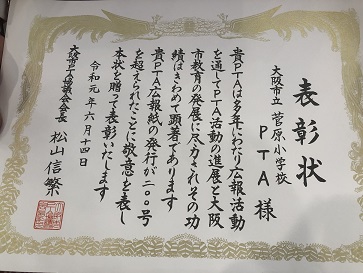 表彰状
大阪市立 菅原小学校
PTA様
貴PTAは多年にわたり広報活動
を通してPTA活動の進展と大阪
市教育の発展に尽力されその功
績はきわめて顕著であります
貴PTA広報紙の発行が二〇〇号
を超えられたことに敬意を表し
本状を贈って表彰いたします
令和元年六月十四日
大阪市PTA協議会会長 松山信繁